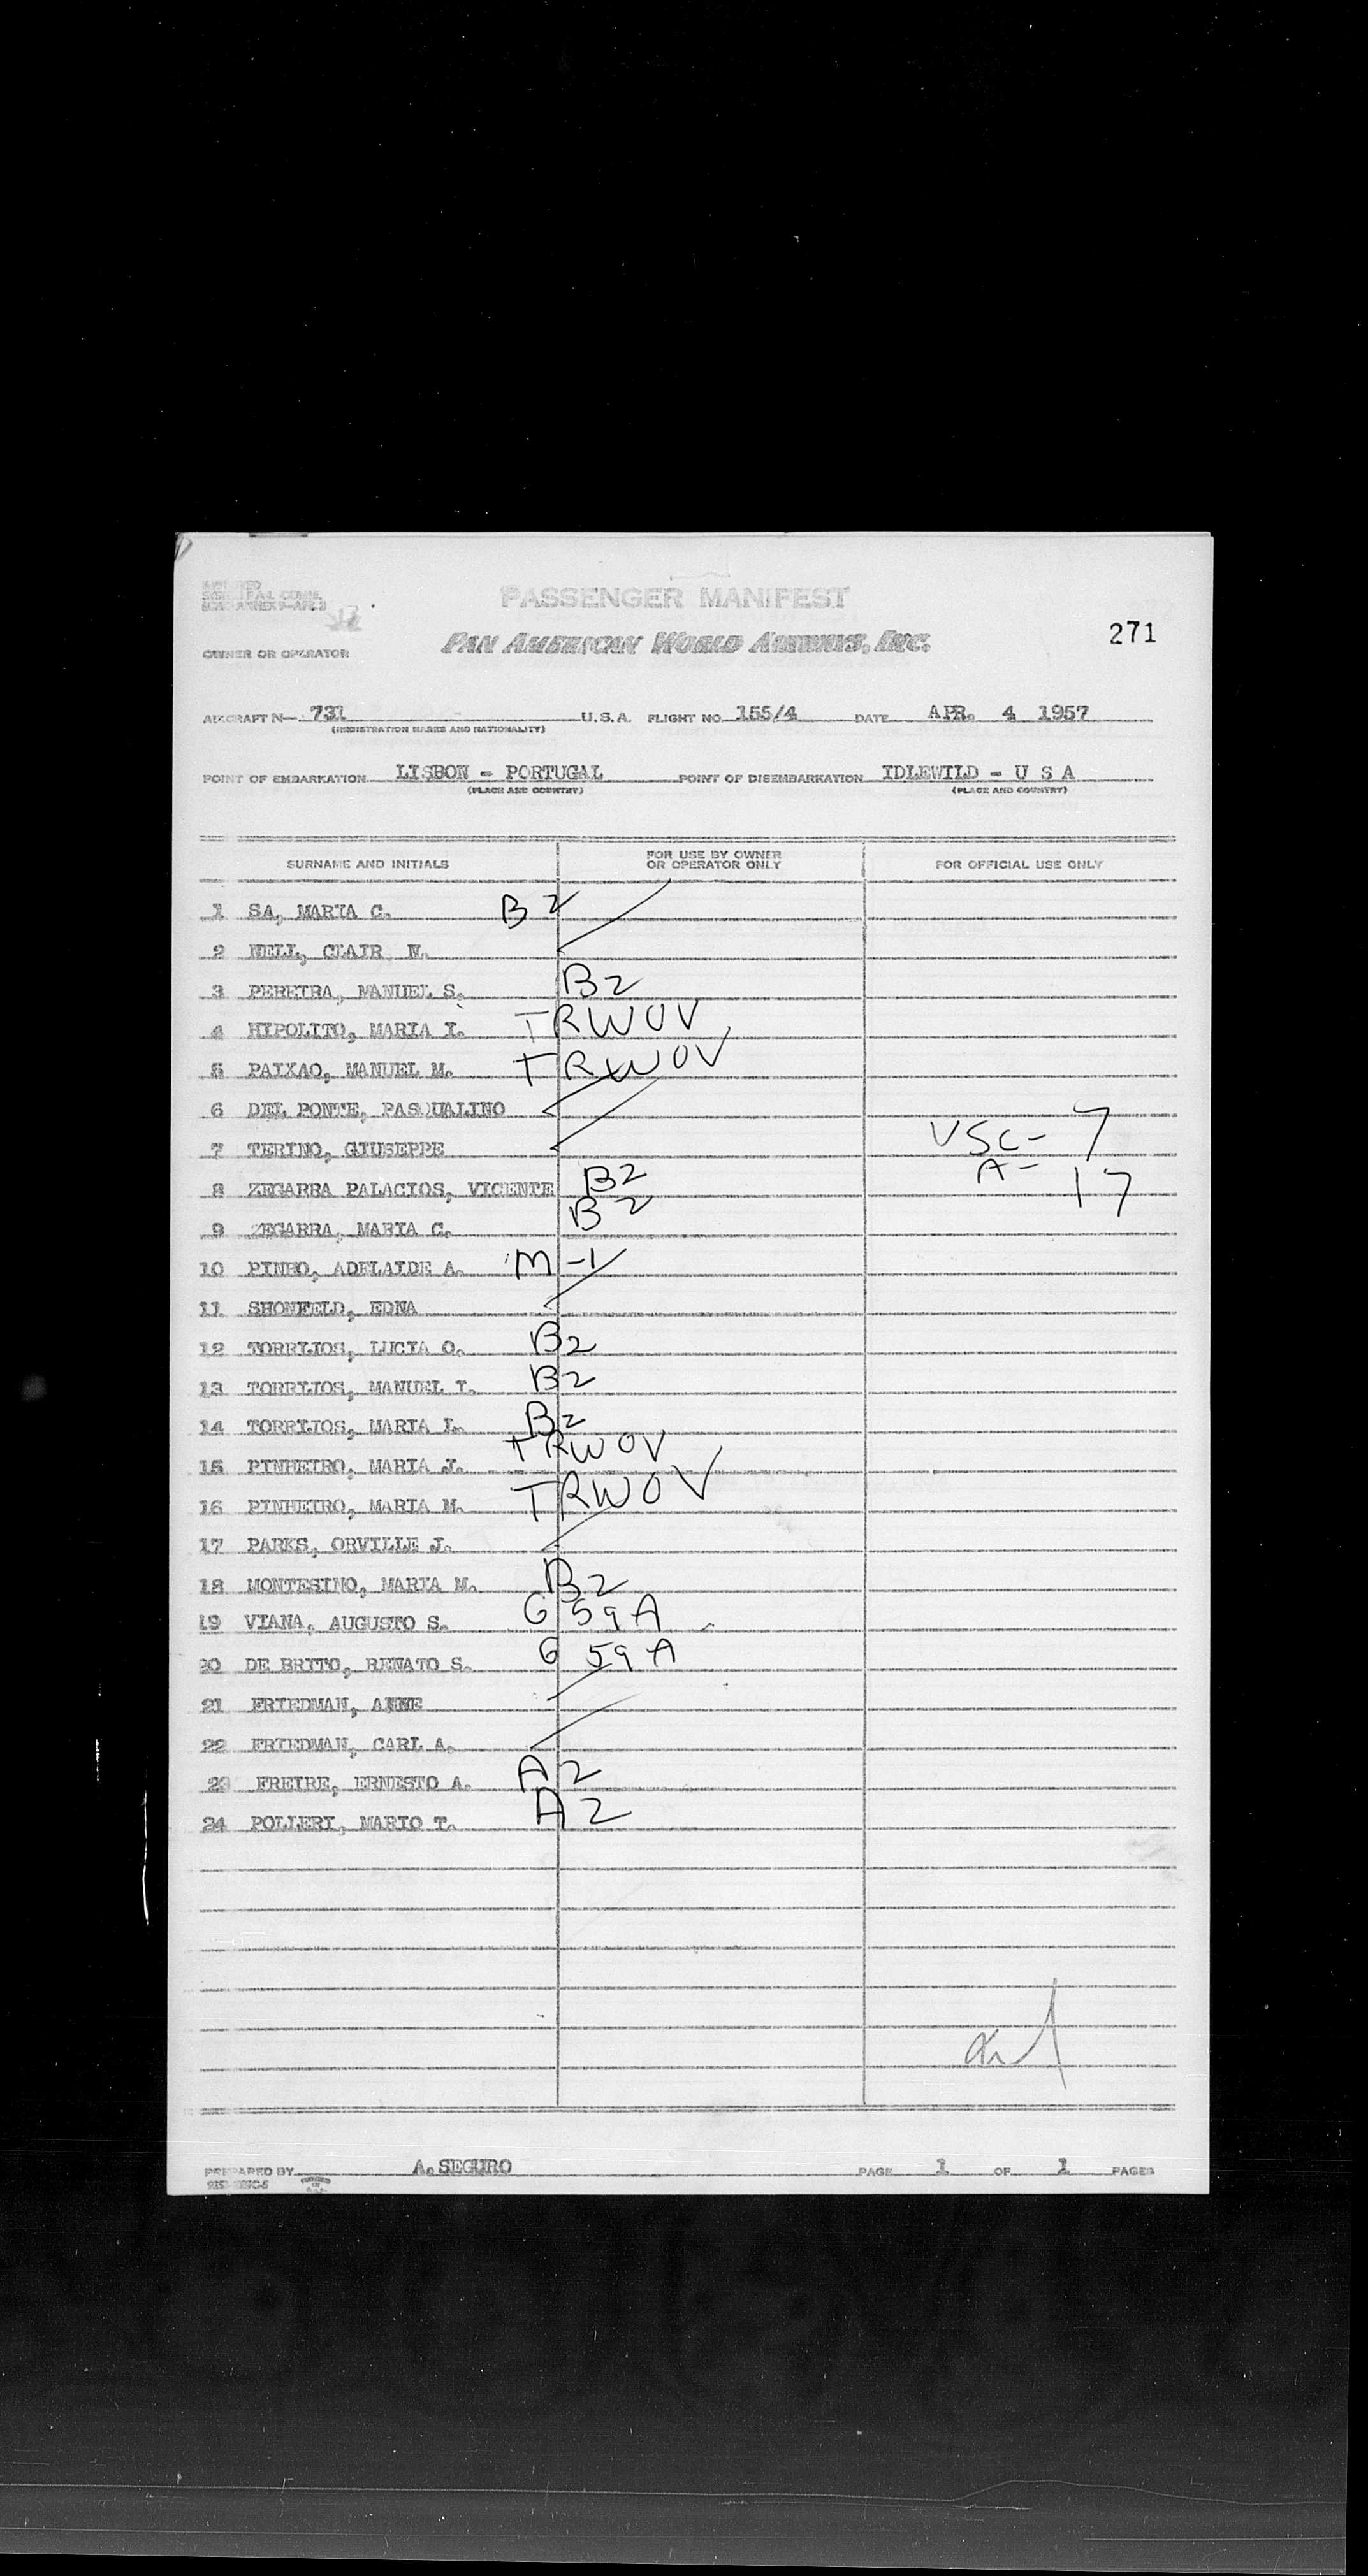 PASSENGER MANIFEST
271
PAN AMERICAN WORLD AIRWAYS, INC.
OWNER OR OPERATOR
AIRCRAFT N— 731 U.S.A. FLIGHT NO. 155/4 DATE APR. 4 1957
(REGISTRATION MARKS AND NATIONALITY)
POINT OF EMBARKATION LISBON - PORTUGAL POINT OF DISEMBARKATION IDLEWILD - U S A
(PLACE AND COUNTRY) (PLACE AND COUNTRY)
SURNAME AND INITIALS FOR USE BY OWNER OR OPERATOR ONLY FOR OFFICIAL USE ONLY
1 SA, MARIA C. B2
2 NELL, CLAIR N.
3 PEREIRA, MANUEL S. B2
4 HIPOLITO, MARIA I. TRWOV
5 PAIXAO, MANUEL M. TRWOV
6 DEL PONTE, PASQUALINO
7 TERINO, GIUSEPPE VSC- 7
8 ZEGARRA PALACIOS, VICENTE B2 A- 17
9 ZEGARRA, MARIA C. B2
10 PINHO, ADELAIDE A. M-1
11 SHONFELD, EDNA
12 TORRLIOS, LUCIA O. B2
13 TORRLIOS, MANUEL I. B2
14 TORRLIOS, MARIA I. B2
15 PINHEIRO, MARIA J. TRWOV
16 PINHEIRO, MARIA M. TRWOV
17 PARKS, ORVILLE J.
18 MONTESINO, MARIA M. B2
19 VIANA, AUGUSTO S. G 59A
20 DE BRITO, RENATO S. G 59A
21 FRIEDMAN, ANNE
22 FRIEDMAN, CARL A.
23 FREIRE, ERNESTO A. A2
24 POLLERI, MARIO T. A2
PREPARED BY A. SEGURO PAGE 1 OF 1 PAGES